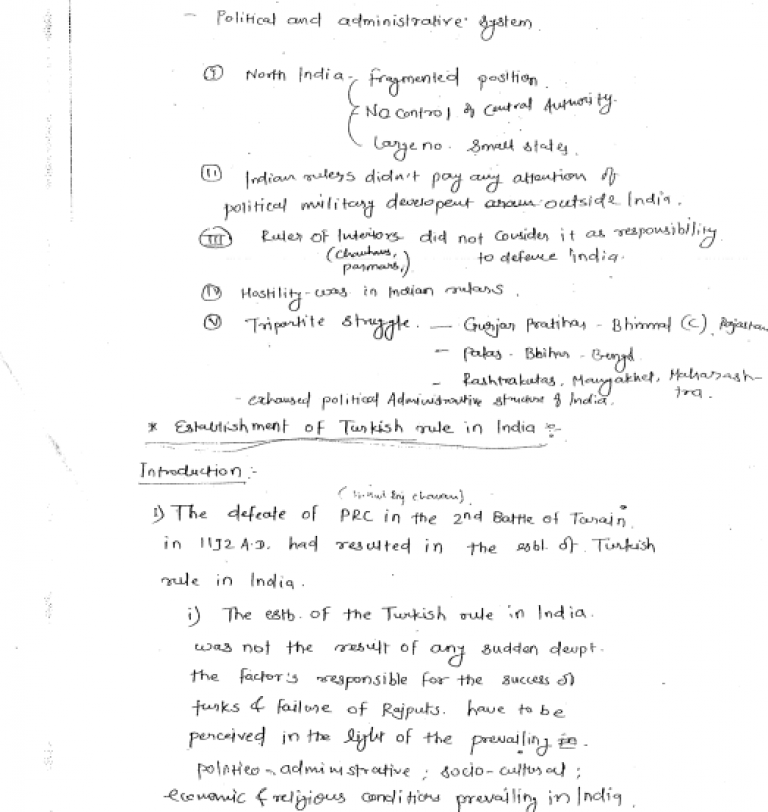 - Political and administrative system
(I) North India - fragmented position.
No control of Central Authority.
Large no. small states.
(II) Indian rulers didn't pay any attention of
political military developent outside India.
(III) Ruler of Interiors did not consider it as responsibility
(Chauhans, to defence India.
parmars,)
(IV) Hostility - was in Indian rulers.
(V) Tripartite struggle. — Gurjar Pratihar - Bhinmal (C), Rajasthan
- Palas - Bengal
- Rashtrakutas, Manyakhet, Maharash-
tra.
- exhaused political Administrative structure of India.
* Establishment of Turkish rule in India :-
Introduction :-
1) The defeate of PRC in the 2nd Battle of Tarain
in 1192 A.D. had resulted in the esbl. of Turkish
rule in India.
i) The estb. of the Turkish rule in India.
was not the result of any sudden devpt.
the factor's responsible for the success of
turks & failure of Rajputs. have to be
perceived in the light of the prevailing
politico - administrative ; socio-cultural ;
economic & religious conditions prevailing in India.